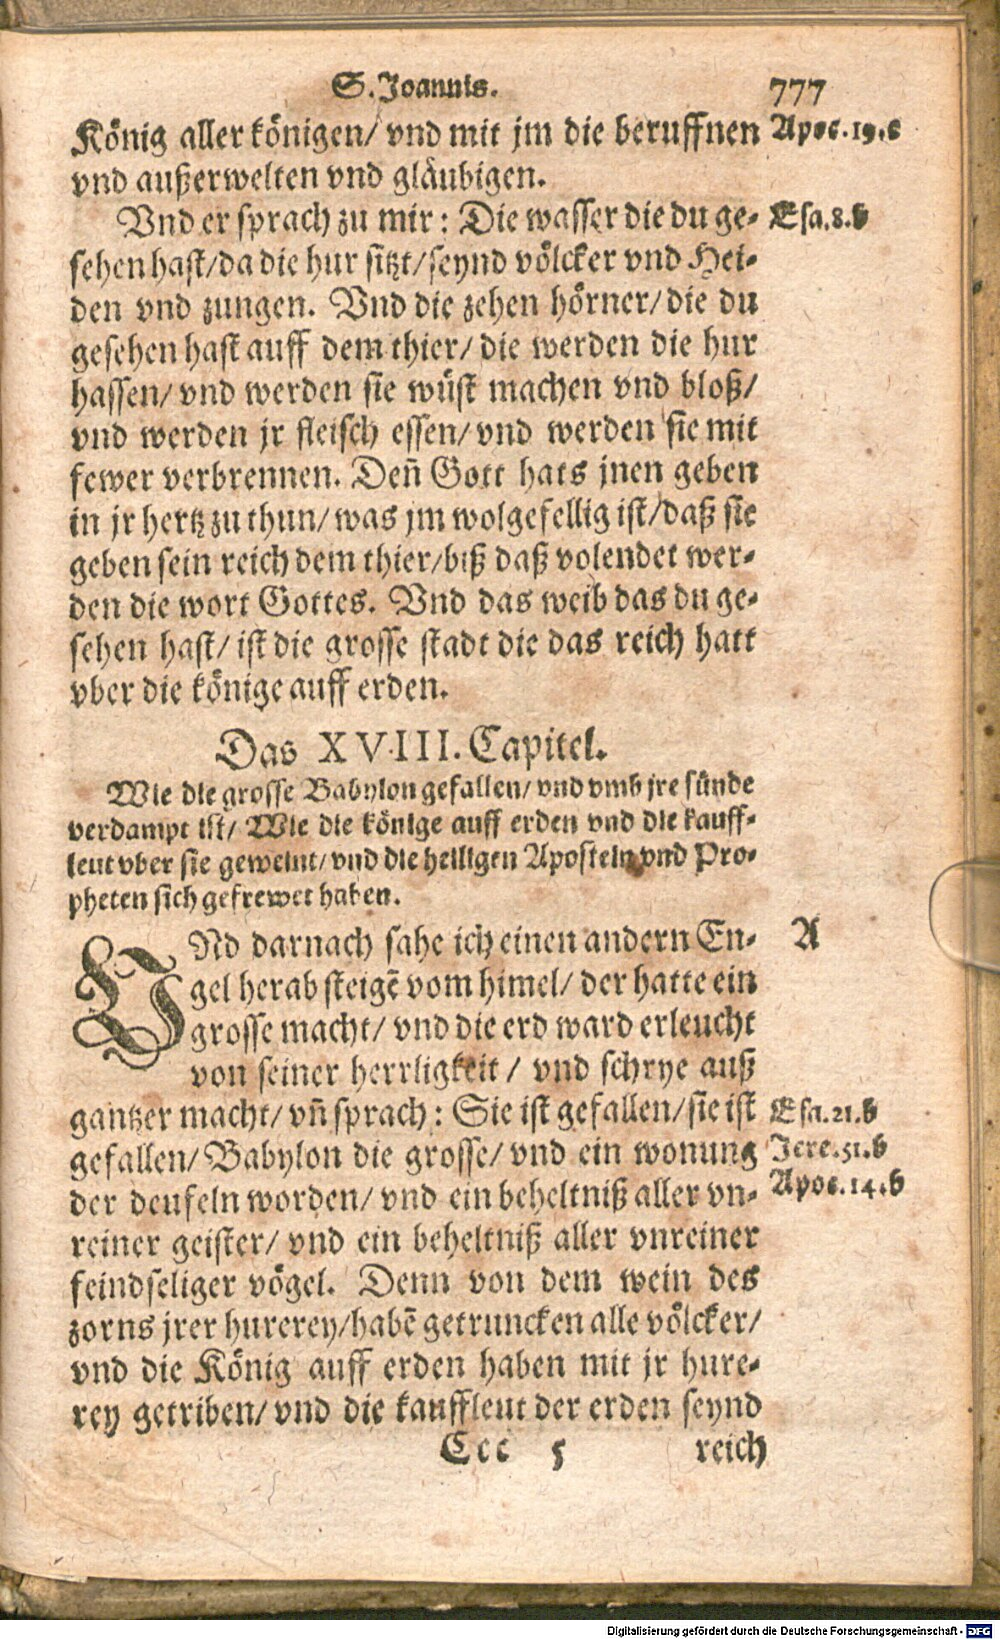 S. Joannis. 777
König aller königen/ vnd mit jm die beruffnen Apoc.19.c
vnd außerwelten vnd gläubigen.
Vnd er sprach zu mir: Die wasser die du ge- Esa.8.b
sehen hast/da die hur sitzt/seynd völcker vnd Hei-
den vnd zungen. Vnd die zehen hörner/die du
gesehen hast auff dem thier/ die werden die hur
hassen/ vnd werden sie wüst machen vnd bloß/
vnd werden jr fleisch essen/ vnd werden sie mit
fewer verbrennen. Deñ Gott hats jnen geben
in jr hertz zu thun/ was jm wolgefellig ist/daß sie
geben sein reich dem thier/biß daß volendet wer-
den die wort Gottes. Vnd das weib das du ge-
sehen hast/ ist die grosse stadt die das reich hatt
vber die könige auff erden.
Das XVIII. Capitel.
Wie die grosse Babylon gefallen/ vnd vmb jre sünde
verdampt ist/ Wie die könige auff erden vnd die kauff-
leut vber sie geweint/ vnd die heiligen Aposteln vnd Pro-
pheten sich gefrewet haben.
VNd darnach sahe ich einen andern En- A
gel herab steigẽ vom himel/ der hatte ein
grosse macht/ vnd die erd ward erleucht
von seiner herrligkeit / vnd schrye auß
gantzer macht/ vñ sprach: Sie ist gefallen/sie ist Esa.21.b
gefallen/ Babylon die grosse/ vnd ein wonung Jere.51.b
der deufeln worden/ vnd ein beheltniß aller vn- Apoc.14.b
reiner geister/ vnd ein beheltniß aller vnreiner
feindseliger vögel. Denn von dem wein des
zorns jrer hurerey/habẽ getruncken alle völcker/
vnd die König auff erden haben mit jr hure-
rey getriben/ vnd die kauffleut der erden seynd
Ccc 5 reich
Digitalisierung gefördert durch die Deutsche Forschungsgemeinschaft - DFG